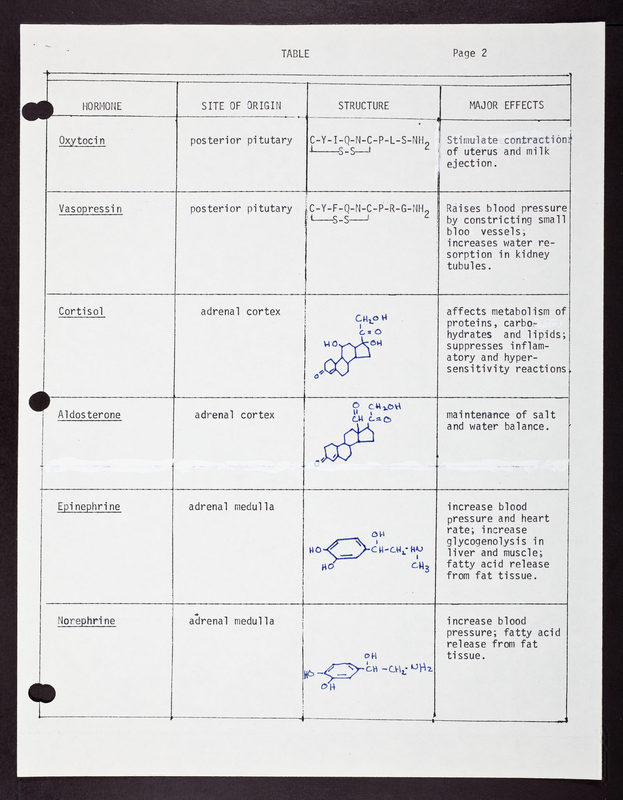 TABLE Page 2
HORMONE SITE OF ORIGIN STRUCTURE MAJOR EFFECTS
Oxytocin posterior pitutary C-Y-I-Q-N-C-P-L-S-NH2 Stimulate contraction
S-S of uterus and milk
ejection.
Vasopressin posterior pitutary C-Y-F-Q-N-C-P-R-G-NH2 Raises blood pressure
S-S by constricting small
bloo vessels;
increases water re-
sorption in kidney
tubules.
Cortisol adrenal cortex affects metabolism of
CH2OH proteins, carbo-
C=O hydrates and lipids;
HO OH suppresses inflam-
atory and hyper-
O sensitivity reactions.
Aldosterone adrenal cortex O CH2OH maintenance of salt
CH C=O and water balance.
O
Epinephrine adrenal medulla increase blood
pressure and heart
rate; increase
OH glycogenolysis in
HO CH-CH2-HN liver and muscle;
HO CH3 fatty acid release
from fat tissue.
Norephrine adrenal medulla increase blood
pressure; fatty acid
release from fat
OH tissue.
HO CH-CH2-NH2
OH